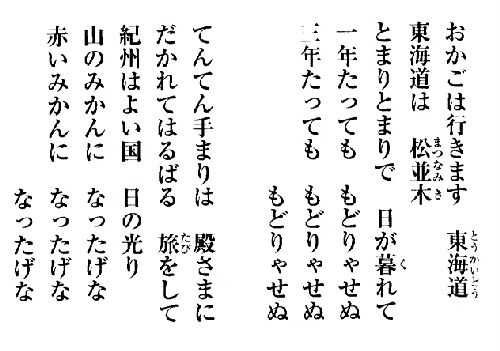 おかごは行きます　東海道
東海道は　松並木
とまりとまりで　日が暮れて
一年たっても　もどりゃせぬ
三年たっても　もどりゃせぬ
てんてん手まりは　殿さまに
だかれてはるばる　旅をして
紀州はよい国　日の光り
山のみかんに　なったげな
赤いみかんに　なったげな
なったげな